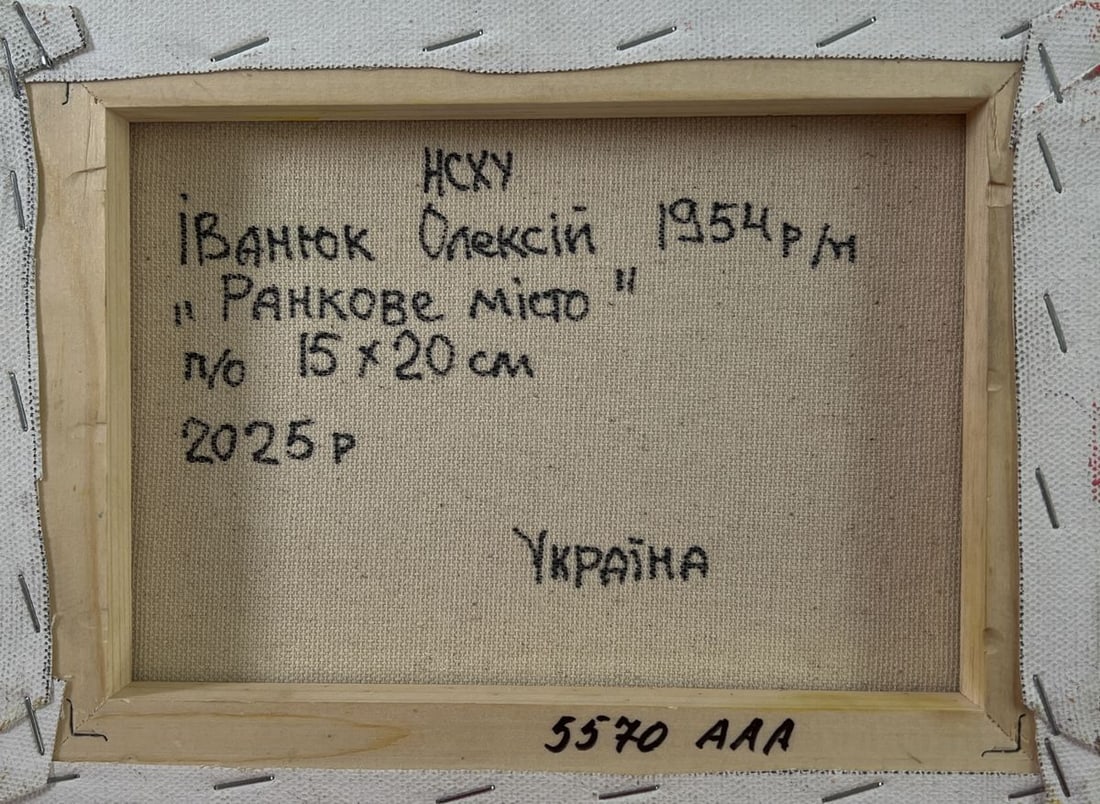 НСХУ
Іванюк Олексій 1954 р/н
„ Ранкове місто "
п/о 15 х 20 см
2025 р
Україна
5570 ААА